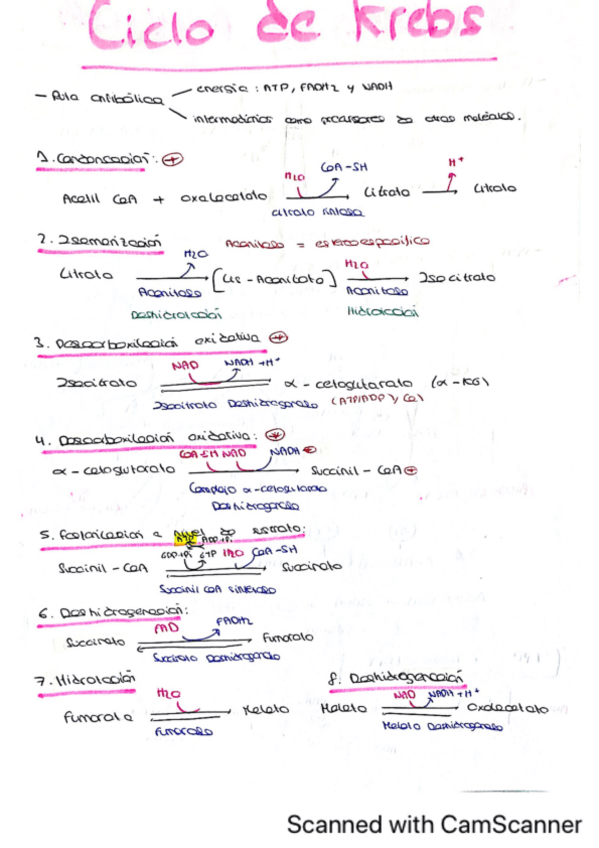 Ciclo de Krebs
- Ruta anfibólica
energía : ATP, FADH2 y NADH
intermediarios como precursores de otras moléculas.
1. Condensación: +
Acetil CoA + oxalacetato H2O CoA-SH Citrato H+ Citrato
citrato sintasa
2. Isomerización Aconitasa = estereoespecífica
Citrato H2O [cis-Aconitato] H2O Isocitrato
Aconitasa Aconitasa
Deshidratación Hidratación
3. Descarboxilación oxidativa +
NAD NADH + H+
Isocitrato α - cetoglutarato (α - KG)
Isocitrato Deshidrogenasa (ATP/ADP y Ca)
4. Descarboxilación oxidativa: +
CoA-SH NAD NADH
α - cetoglutarato Succinil - CoA
Complejo α-cetoglutarato
Deshidrogenasa
5. Fosforilación a nivel de sustrato:
ATP ADP+Pi
GDP+Pi GTP H2O CoA-SH
Succinil - CoA Succinato
Succinil CoA sintetasa
6. Deshidrogenación:
FAD FADH2
Succinato Fumarato
Succinato Deshidrogenasa
7. Hidratación
H2O
Fumarato Malato
Fumarasa
8. Deshidrogenación
NAD NADH + H+
Malato Oxalacetato
Malato Deshidrogenasa
Scanned with CamScanner